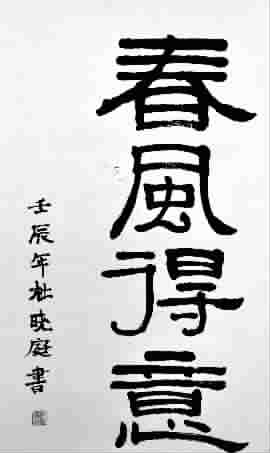 春風得意
壬辰年杜曉庭書